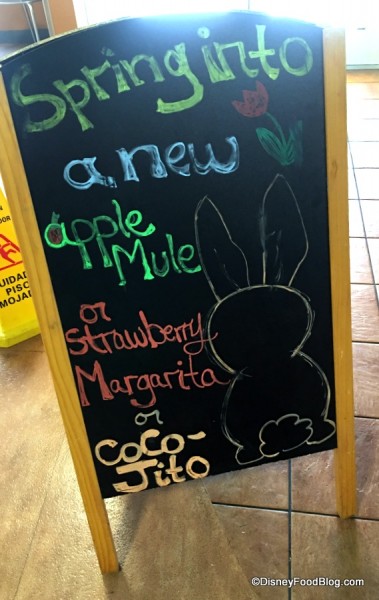 Spring into
a new
apple
Mule
or
strawberry
Margarita
or
COCO-
JITO
CUIDADO
PISO
MOJADO
©DisneyFoodBlog.com